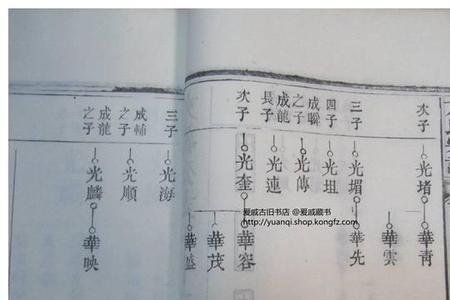 次子 光堵 華青
華雲
三子 光堳 華先
四子
之子 光傳
成龍長子 光連
次子 光奎 華容
華茂
華盛
三子 光海
成輔之子 光順
成龍之子 光麟 華映
爱戚古旧书店 @爱戚藏书
http://yuanqi.shop.kongfz.com